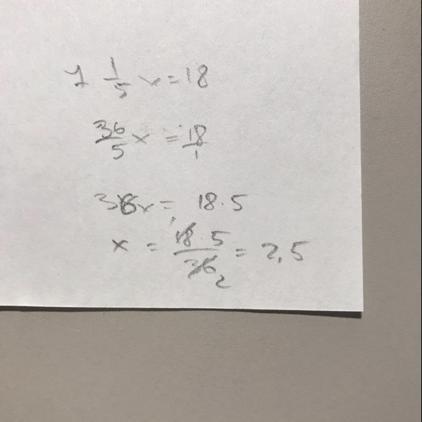 7 1/5 x = 18
36/5 x = 18/1
36x = 18 · 5
x = 18 · 5 / 36 2 = 2,5